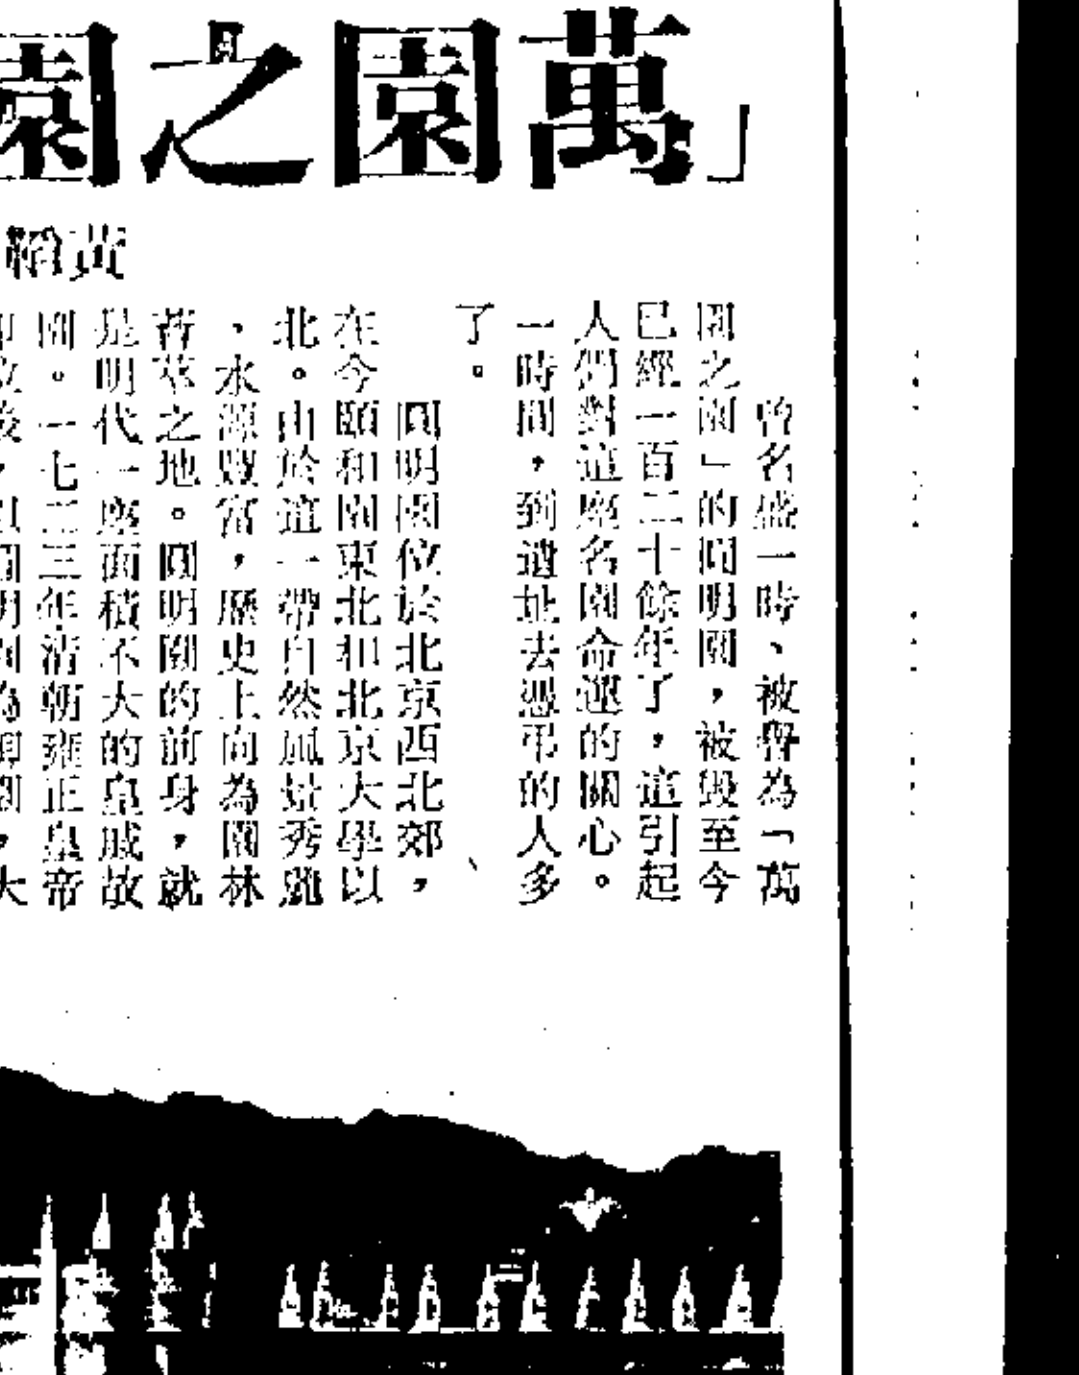 「萬園之園
黃
曾名盛一時、被譽為「萬
園之園」的圓明園，被毀至今
已經一百二十餘年了，這引起
人們對這座名園命運的關心。
一時間，到遺址去憑弔的人多
了。
圓明園位於北京西北郊，
在今頤和園東北和北京大學以
北。由於這一帶自然風景秀麗
、水源豐富，歷史上向為園林
薈萃之地。圓明園的前身，就
是明代一座面積不大的皇戚故
園。一七二三年清朝雍正皇帝
後，以圓明園為御園，大